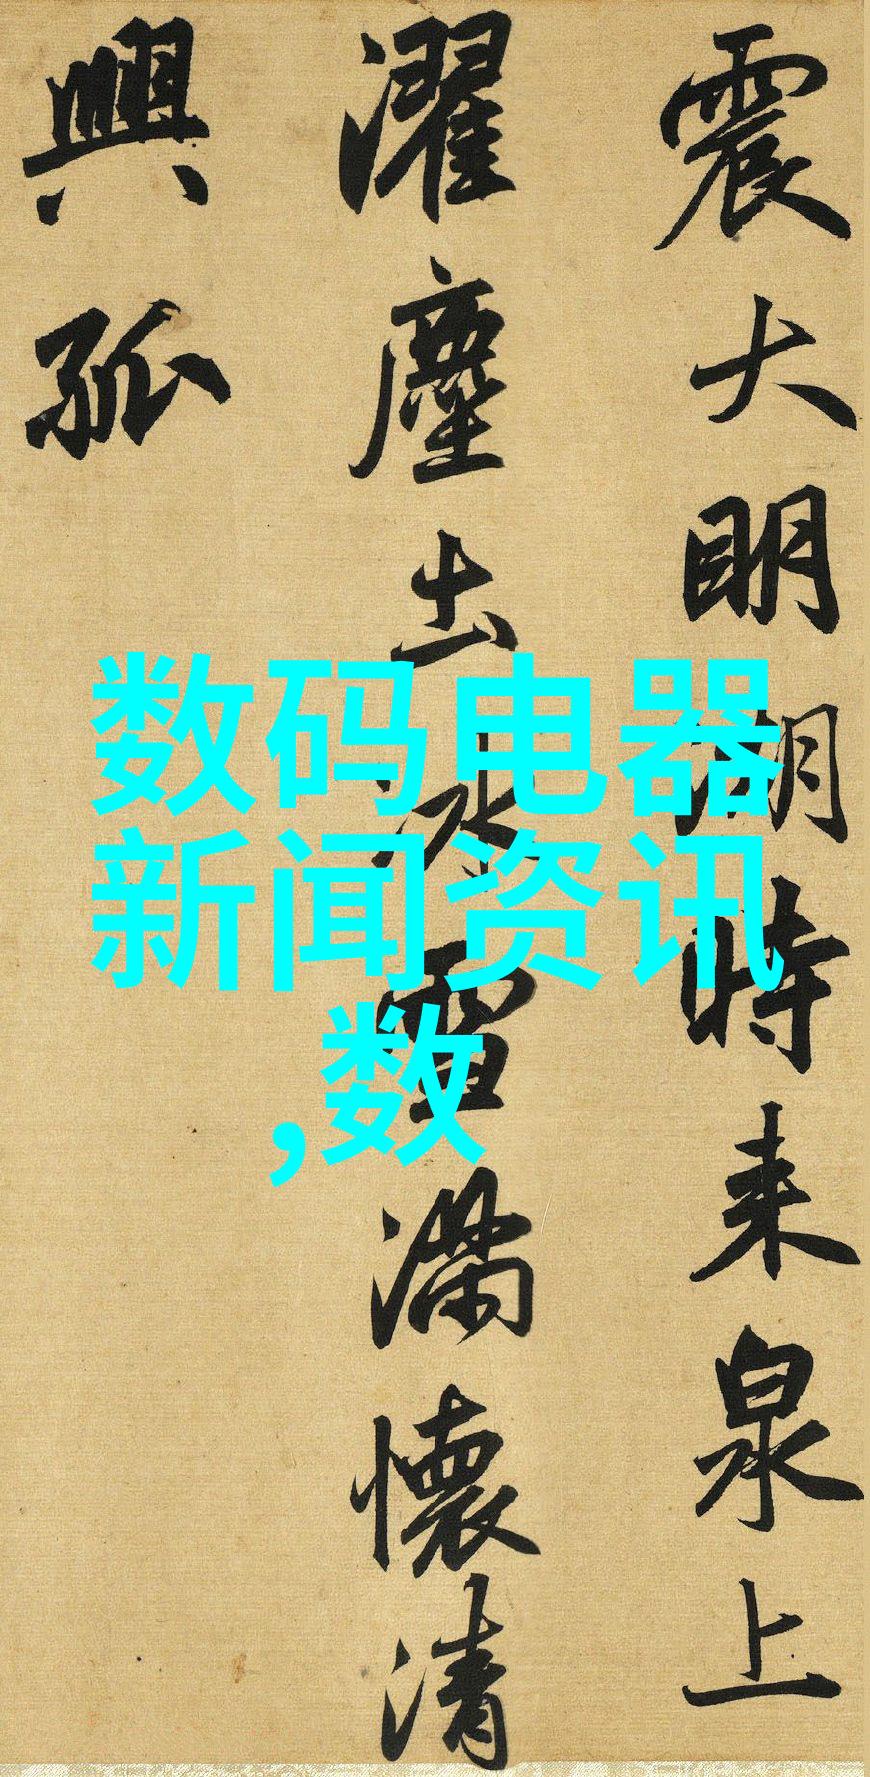 震大明湖時来泉上
濯塵土冰雪滿懷清
興孤
数码电器
新闻资讯
,数